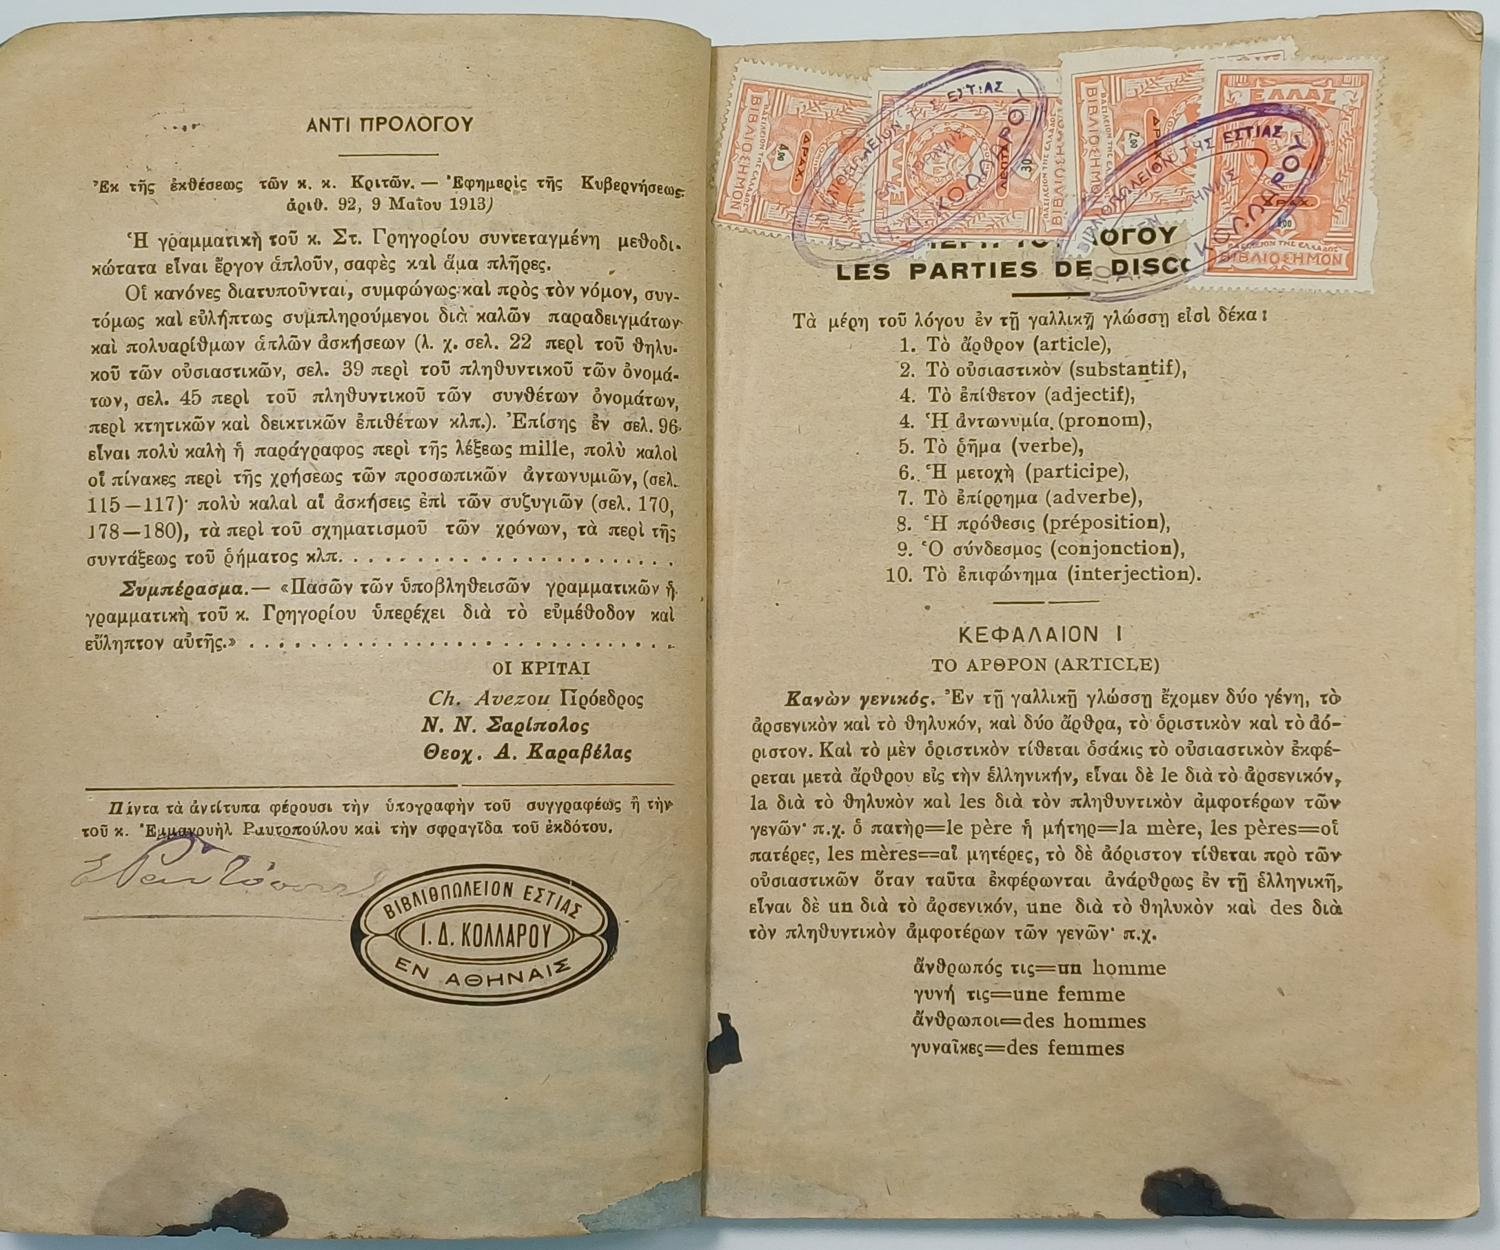 ΑΝΤΙ ΠΡΟΛΟΓΟΥ
Ἐκ τῆς ἐκθέσεως τῶν κ. κ. Κριτῶν.— Ἐφημερὶς τῆς Κυβερνήσεως
ἀριθ. 92, 9 Μαΐου 1913)
Ἡ γραμματικὴ τοῦ κ. Στ. Γρηγορίου συντεταγμένη μεθοδι-
κώτατα εἶναι ἔργον ἁπλοῦν, σαφὲς καὶ ἅμα πλῆρες.
Οἱ κανόνες διατυποῦνται, συμφώνως καὶ πρὸς τὸν νόμον, συν-
τόμως καὶ εὐλήπτως συμπληρούμενοι διὰ καλῶν παραδειγμάτων
καὶ πολυαρίθμων ἁπλῶν ἀσκήσεων (λ. χ. σελ. 22 περὶ τοῦ θηλυ-
κοῦ τῶν οὐσιαστικῶν, σελ. 39 περὶ τοῦ πληθυντικοῦ τῶν ὀνομά-
των, σελ. 45 περὶ τοῦ πληθυντικοῦ τῶν συνθέτων ὀνομάτων,
περὶ κτητικῶν καὶ δεικτικῶν ἐπιθέτων κλπ.). Ἐπίσης ἐν σελ. 96
εἶναι πολὺ καλὴ ἡ παράγραφος περὶ τῆς λέξεως mille, πολὺ καλοὶ
οἱ πίνακες περὶ τῆς χρήσεως τῶν προσωπικῶν ἀντωνυμιῶν, (σελ.
115—117)· πολὺ καλαὶ αἱ ἀσκήσεις ἐπὶ τῶν συζυγιῶν (σελ. 170,
178—180), τὰ περὶ τοῦ σχηματισμοῦ τῶν χρόνων, τὰ περὶ τῆς
συντάξεως τοῦ ῥήματος κλπ. . . . . . . . . . . . . . . . . . . . . . .
Συμπέρασμα.— «Πασῶν τῶν ὑποβληθεισῶν γραμματικῶν ἡ
γραμματικὴ τοῦ κ. Γρηγορίου ὑπερέχει διὰ τὸ εὐμέθοδον καὶ
εὔληπτον αὐτῆς.» . . . . . . . . . . . . . . . . . . . . . . . . . . . .
ΟΙ ΚΡΙΤΑΙ
Ch. Avezou Πρόεδρος
Ν. Ν. Σαρίπολος
Θεοχ. Α. Καραβέλας
Πάντα τὰ ἀντίτυπα φέρουσι τὴν ὑπογραφὴν τοῦ συγγραφέως ἢ τὴν
τοῦ κ. Ἐμμανουὴλ Ραυτοπούλου καὶ τὴν σφραγῖδα τοῦ ἐκδότου.
ΒΙΒΛΙΟΠΩΛΕΙΟΝ ΕΣΤΙΑΣ
Ι. Δ. ΚΟΛΛΑΡΟΥ
ΕΝ ΑΘΗΝΑΙΣ
ΕΛΛΑΣ
ΔΡΑΧ.
ΒΙΒΛΙΟΣΗΜΟΝ
ΒΙΒΛΙΟΠΩΛΕΙΟΝ ΤΗΣ ΕΣΤΙΑΣ
ΚΟΛΛΑΡΟΥ
ΛΟΓΟΥ
LES PARTIES DE DISC
Τὰ μέρη τοῦ λόγου ἐν τῇ γαλλικῇ γλώσσῃ εἰσὶ δέκα:
1. Τὸ ἄρθρον (article),
2. Τὸ οὐσιαστικὸν (substantif),
4. Τὸ ἐπίθετον (adjectif),
4. Ἡ ἀντωνυμία (pronom),
5. Τὸ ῥῆμα (verbe),
6. Ἡ μετοχὴ (participe),
7. Τὸ ἐπίρρημα (adverbe),
8. Ἡ πρόθεσις (préposition),
9. Ὁ σύνδεσμος (conjonction),
10. Τὸ ἐπιφώνημα (interjection).
ΚΕΦΑΛΑΙΟΝ Ι
ΤΟ ΑΡΘΡΟΝ (ARTICLE)
Κανὼν γενικός. Ἐν τῇ γαλλικῇ γλώσσῃ ἔχομεν δύο γένη, τὸ
ἀρσενικὸν καὶ τὸ θηλυκόν, καὶ δύο ἄρθρα, τὸ ὁριστικὸν καὶ τὸ ἀό-
ριστον. Καὶ τὸ μὲν ὁριστικὸν τίθεται ὁσάκις τὸ οὐσιαστικὸν ἐκφέ-
ρεται μετὰ ἄρθρου εἰς τὴν ἑλληνικήν, εἶναι δὲ le διὰ τὸ ἀρσενικόν,
la διὰ τὸ θηλυκὸν καὶ les διὰ τὸν πληθυντικὸν ἀμφοτέρων τῶν
γενῶν· π.χ. ὁ πατὴρ=le père ἡ μήτηρ=la mère, les pères=οἱ
πατέρες, les mères=αἱ μητέρες, τὸ δὲ ἀόριστον τίθεται πρὸ τῶν
οὐσιαστικῶν ὅταν ταῦτα ἐκφέρωνται ἀνάρθρως ἐν τῇ ἑλληνικῇ,
εἶναι δὲ un διὰ τὸ ἀρσενικόν, une διὰ τὸ θηλυκὸν καὶ des διὰ
τὸν πληθυντικὸν ἀμφοτέρων τῶν γενῶν· π.χ.
ἄνθρωπός τις=un homme
γυνή τις=une femme
ἄνθρωποι=des hommes
γυναῖκες=des femmes